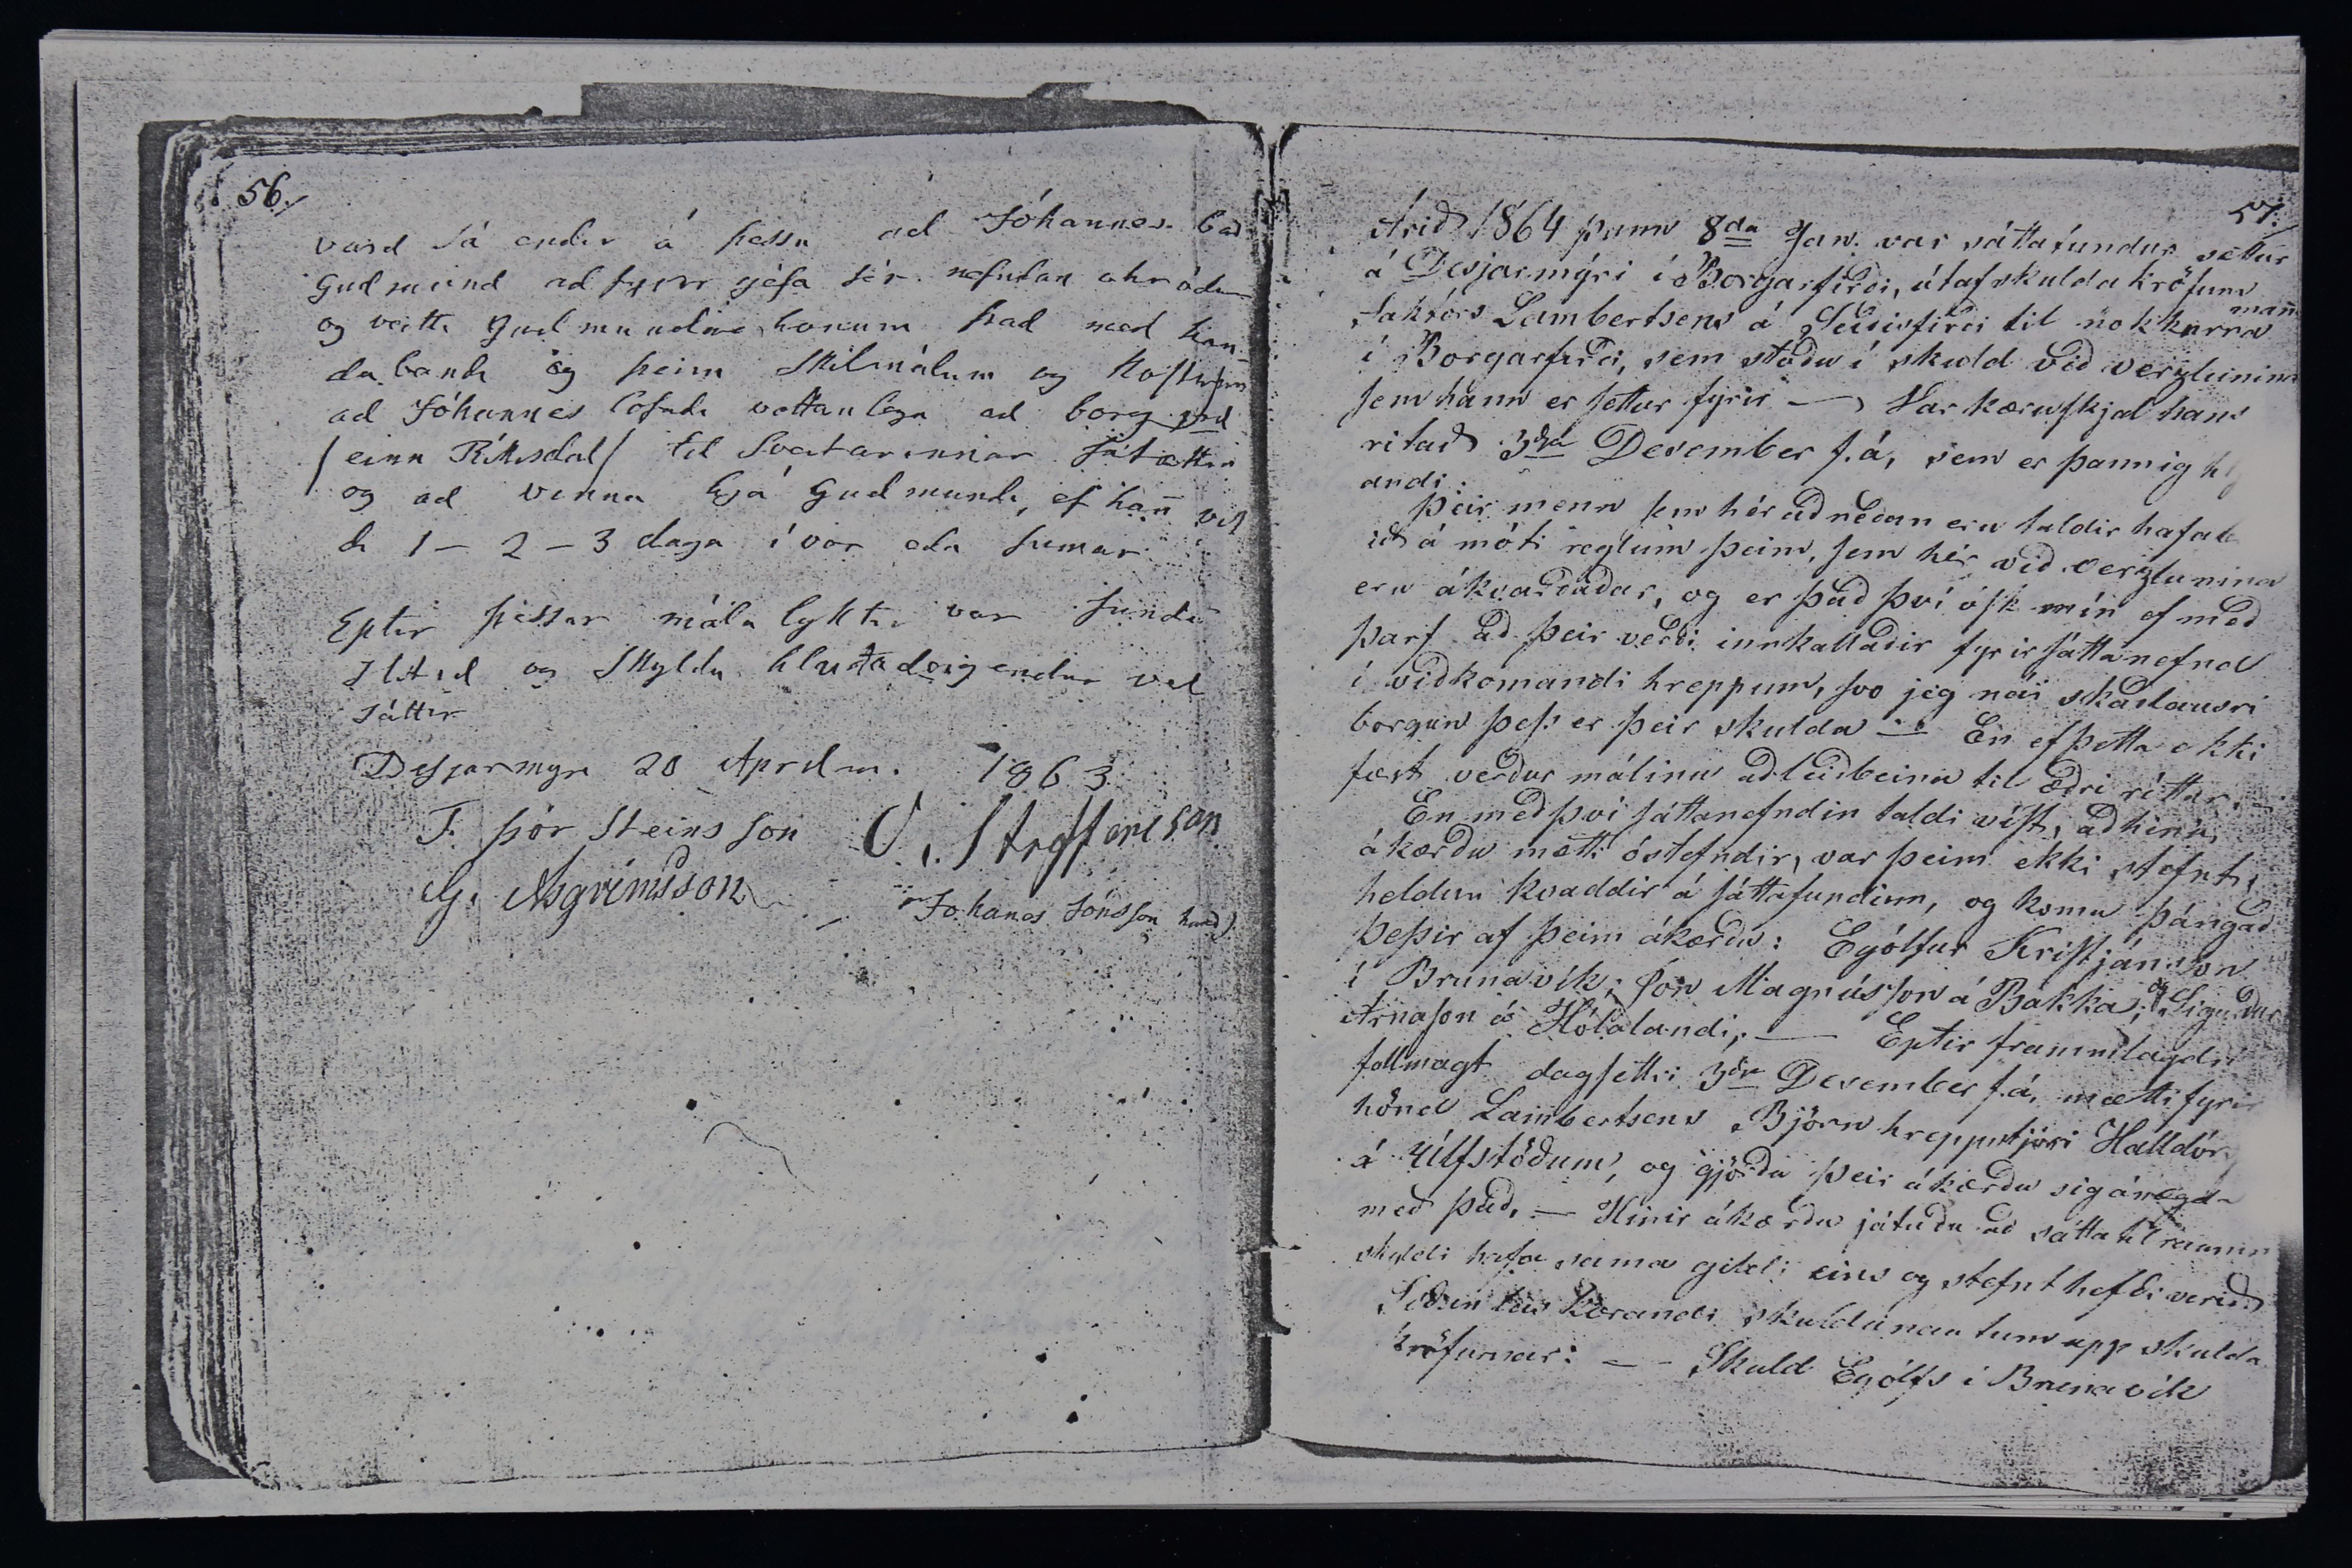 56./
vard sá endir á þessu ad Jóhannes bad
Gudmund ad fyrir géfa sér nefndan
og veitti Gudmundur honum það med han-
da bandi og þeim skilmálum og kostum
ad Jóhannes lofadi vottanlega ad borg
/einn Ríkisdal/ til Sveitarinnar fátækra
og ad vinna hjá Gudmundi, ef hann vil
di 1 - 2 - 3 daga í vor eda sumar
Eptir þessar mála lyktir var fundi
slitid og Skyldu hlutadeigendur vel
sáttir
Desjarmyri 20 Aprilm. 1863
F. Þórsteinsson S. Steffansson
G. Asgrímsson
Johanes Jónsson
57./
Árið 1864 þann 8da Jan. var sáttafundur settur
á Desjarmýri í Borgarfirði, útaf skuldakröfum
Faktórs Lambertsens á Seiðisfirði til nokkurra mann
í Borgarfirði, sem stóðu í skuld við verzlunina
sem hann er settur fyrir — Var kæruskjal hans
ritað 3ja Desember f. á, sem er þannig hl
andi:
Þeir menn sem hér að neðan eru taldir hafa
ið á móti reglum þeim, sem hér við verzlunina
eru ákvarðaðar, og er það því ósk mín ef með
þarf að þeir verði innkallaðir fyrir sáttanefnd
í viðkomandi hreppum, svo jeg nái skaðlausri
borgun þess er þeir skulda — En ef þetta ekki
fæst verður málinu að leiðbeina til æðri réttar. —
En með því sáttanefndin taldi víst, að hinir
ákærðu mætti óstefndir, var þeim ekki stefnt,
heldur kvaddir á sáttafundinn, og komu þángað
þessir af þeim ákærðu: Eyólfur Kristjánsson
í Brúnavík; Jón Magnússon á Bakka; og Sigurður
Árnason á Hólalandi; — Eptir frammlagdri
fullmagt dagsettri 3ja Desember f. á, mætti fyrir
hönd Lambertsens Björn hreppstjóri Halldórs
á Úlfstöðum, og gjörðu þeir ákærðu sig ánægda
með það, — Hinir ákærðu játuðu að sáttatilraunin
skyldi hafa sama gildi eins og stefnt hefði verið
Síðan las kærandi skuldunautum upp skulda
kröfurnar: — Skuld Eyólfs í Brúnavík